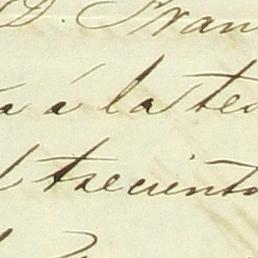 D. Fran
a á las tes
l treciento